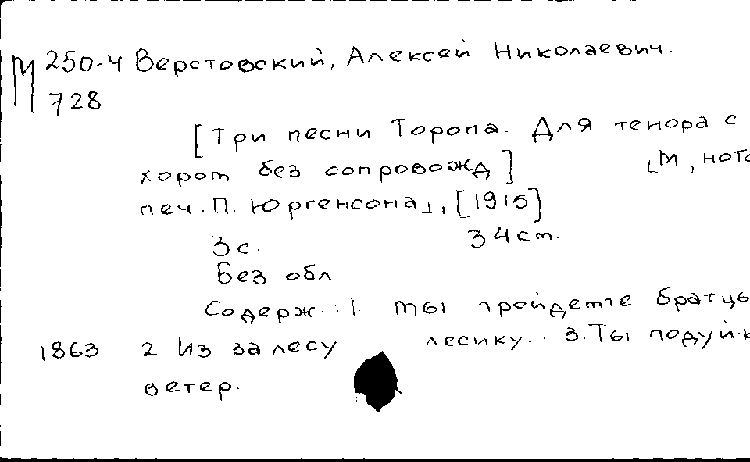 М 250-4 Верстовский, Алексей Николаевич.
728
[Три песни Торопа. Для тенора с
хором без сопровожд] [М, ното
печ. П. Юргенсона], [1915]
3с. 34 ст.
Без обл
Содерж.: 1. Ты пройдемте братцы
1863 2 Из за лесу лесику.. 3. Ты подуй-к
ветер.